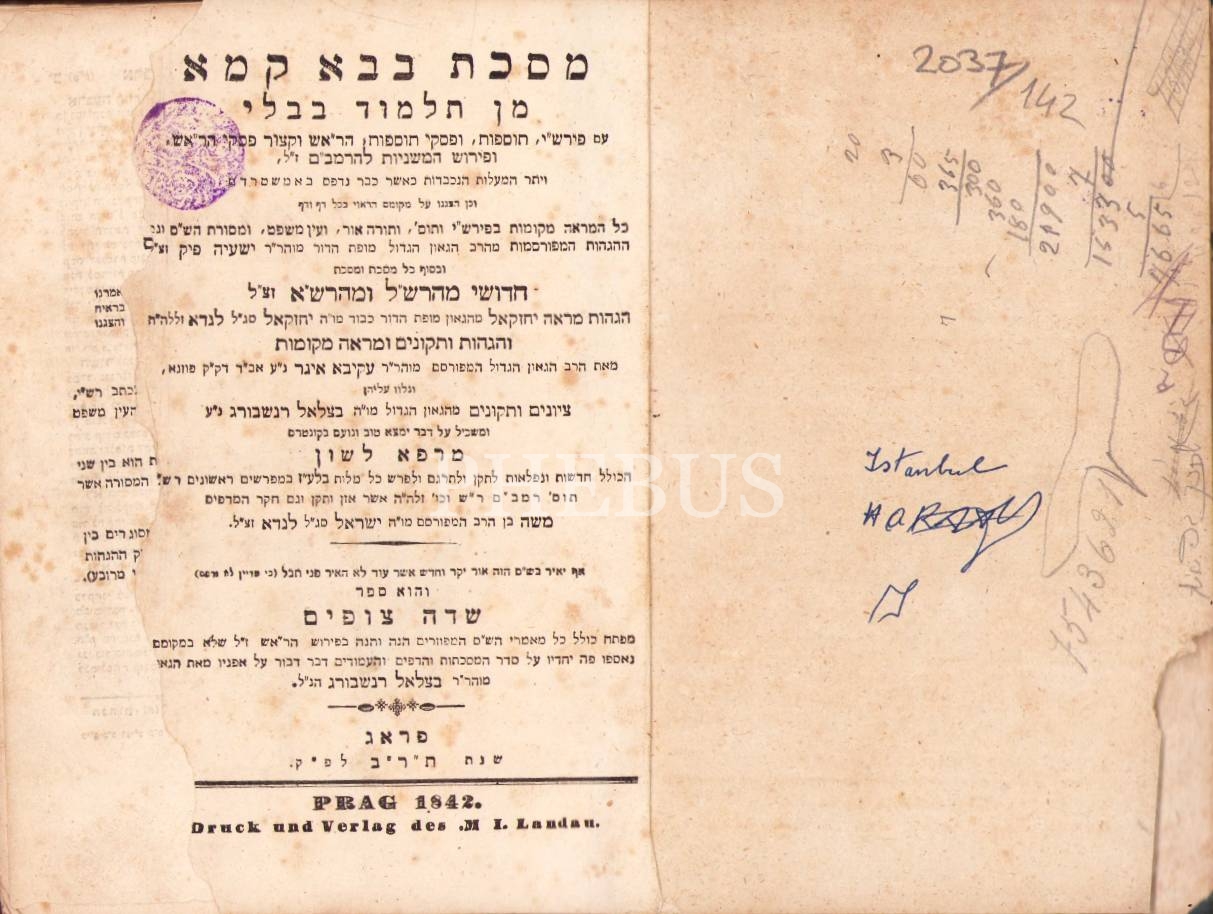 מסכת בבא קמא
מן תלמוד בבלי
עם פירש"י, תוספות, ופסקי תוספות, הרא"ש וקצור פסקי הרא"ש,
ופירוש המשניות להרמב"ם ז"ל,
ויתר המעלות הנכבדות כאשר כבר נדפס באמשטרדם
וכן הצגנו על מקומם הראוי בכל דף ודף
כל המראה מקומות בפירש"י ותוס', ותורה אור, ועין משפט, ומסורת הש"ס
ההגהות המפורסמות מהרב הגאון הגדול מופת הדור מוהר"ר ישעיה פיק זצ"ל
ובסוף כל מסכת ומסכת
חדושי מהרש"ל ומהרש"א זצ"ל
הגהות מראה יחזקאל מהגאון מופת הדור כבוד מו"ה יחזקאל סג"ל לנדא זללה"ה
והגהות ותקונים ומראה מקומות
מאת הרב הגאון הגדול המפורסם מוהר"ר עקיבא איגר נ"ע אב"ד דק"ק פוזנא,
ונלוו עליהן
ציונים ותקונים מהגאון הגדול מו"ה בצלאל רנשבורג נ"ע
ומשכיל על דבר ימצא טוב ונועם בקונטרס
מרפא לשון
הכולל חדשות ונפלאות לתקן ולתרגם ולפרש כל מלות בלע"ז במפרשים ראשונים רש"י
תוס' רמב"ם ר"ש וכו' זלה"ה אשר אזן ותקן וגם חקר המדפיס
משה בן הרב המפורסם מו"ה ישראל סג"ל לנדא זצ"ל.
אף יאיר בש"ס הזה אור יקר וחדש אשר עוד לא האיר פני תבל
והוא ספר
שדה צופים
מפתח כולל כל מאמרי הש"ס המפוזרים הנה והנה בפירוש הרא"ש ז"ל שלא במקומם
נאספו פה יחדיו על סדר המסכתות והדפים והעמודים דבר דבור על אפניו מאת הגאון
מוהר"ר בצלאל רנשבורג הנ"ל.
פראג
שנת ת"ר"י"ב לפ"ק.
PRAG 1842.
Druck und Verlag des .M I. Landau.
אמרנו
בראיה
והצגנו
כתב רש"י,
העין משפט
ת הוא בין שני
המסורה אשר
סוגרים בין
ק ההגהות
י מרובע).
PHEBUS
2037
142
20
3
60
365
300
360
180
21900
7
15330
5
Istanbul
754369